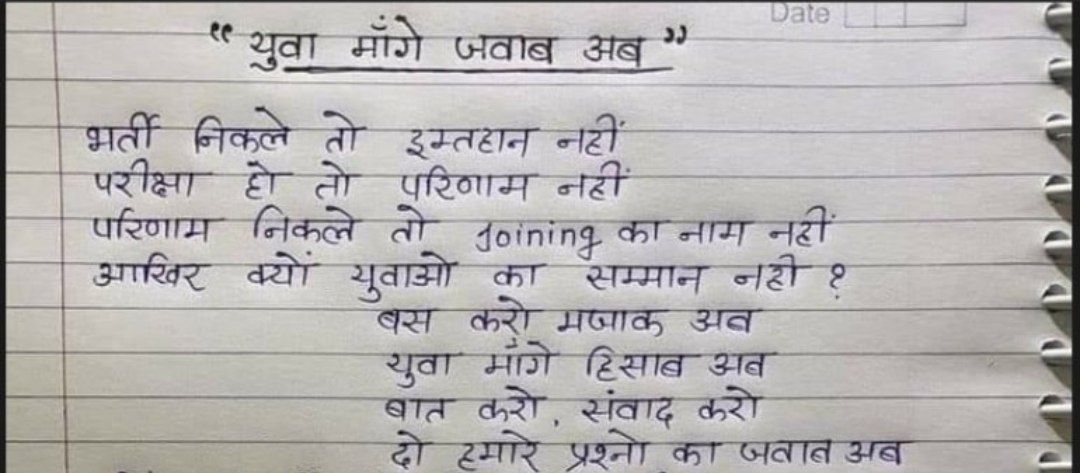 Date
“ युवा माँगे जवाब अब ”
भर्ती निकले तो इम्तहान नहीं
परीक्षा हो तो परिणाम नहीं
परिणाम निकले तो Joining का नाम नहीं
आखिर क्यों युवाओ का सम्मान नही ?
बस करो मजाक अब
युवा माँगे हिसाब अब
बात करो, संवाद करो
दो हमारे प्रश्नो का जवाब अब